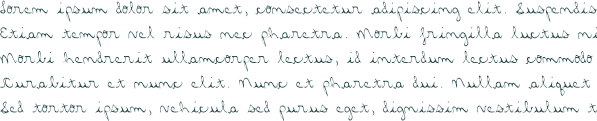 Lorem ipsum dolor sit amet, consectetur adipiscing elit. Suspendis
Etiam tempor vel risus nec pharetra. Morbi fringilla luctus ni
Morbi hendrerit ullamcorper lectus, id interdum lectus commodo
Curabitur et nunc elit. Nunc et pharetra dui. Nullam aliquet
Sed tortor ipsum, vehicula sed purus eget, dignissim vestibulum t